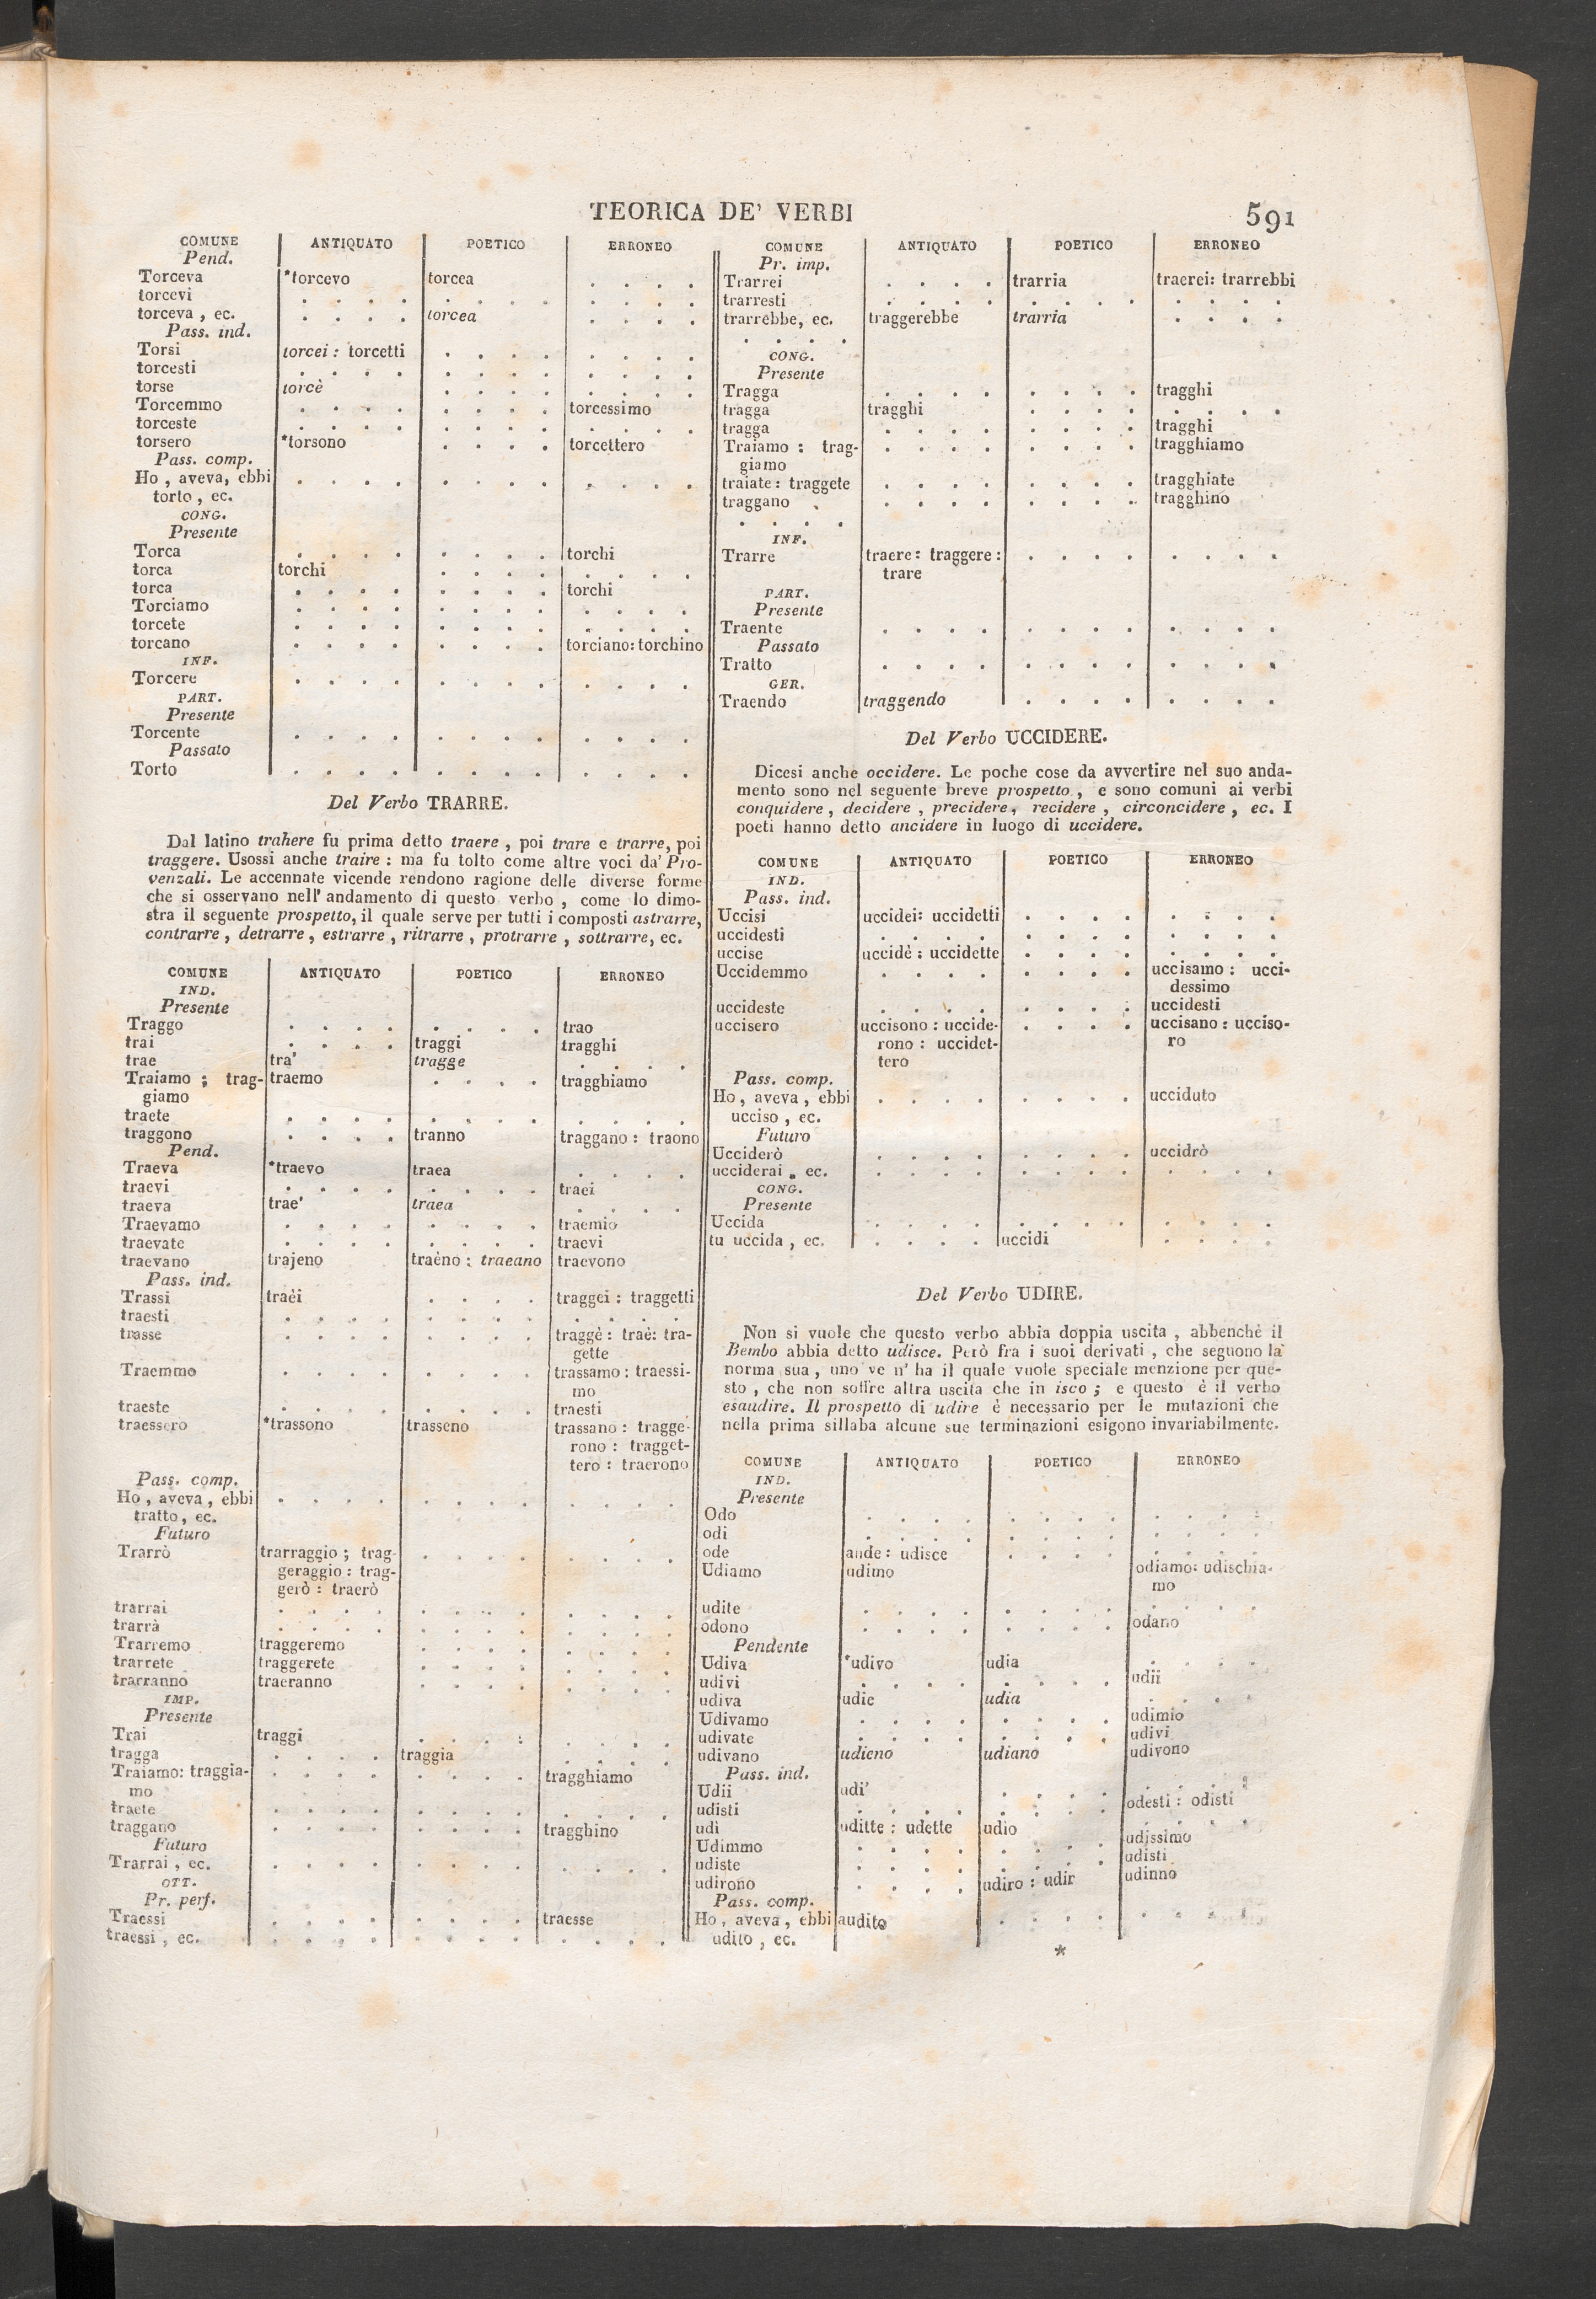 TEORICA DE' VERBI 591
COMUNE ANTIQUATO POETICO ERRONEO
Pend.
Torceva *torcevo torcea . . . .
torcevi . . . . . . . . . . . .
torceva , ec. . . . . torcea . . . .
Pass. ind.
Torsi torcei : torcetti . . . . . . . .
torcesti . . . . . . . . . . . .
torse torcè . . . . . . . .
Torcemmo . . . . . . . . torcessimo
torceste . . . . . . . . . . . .
torsero *torsono . . . . torcettero
Pass. comp.
Ho , aveva, ebbi . . . . . . . . . . . .
torto , ec.
CONG.
Presente
Torca . . . . . . . . torchi
torca torchi . . . . . . . .
torca . . . . . . . . torchi
Torciamo . . . . . . . . . . . .
torcete . . . . . . . . . . . .
torcano . . . . . . . . torciano: torchino
INF.
Torcere . . . . . . . . . . . .
PART.
Presente
Torcente . . . . . . . . . . . .
Passato
Torto . . . . . . . . . . . .
Del Verbo TRARRE.
Dal latino trahere fu prima detto traere , poi trare e trarre, poi
traggere. Usossi anche traire : ma fu tolto come altre voci da' Pro-
venzali. Le accennate vicende rendono ragione delle diverse forme
che si osservano nell' andamento di questo verbo , come lo dimo-
stra il seguente prospetto, il quale serve per tutti i composti astrarre,
contrarre , detrarre , estrarre , ritrarre , protrarre , sottrarre, ec.
COMUNE ANTIQUATO POETICO ERRONEO
IND.
Presente
Traggo . . . . . . . . trao
trai . . . . traggi tragghi
trae tra' tragge . . . .
Traiamo ; trag- traemo . . . . tragghiamo
giamo
traete . . . . . . . . . . . .
traggono . . . . tranno traggano : traono
Pend.
Traeva *traevo traea . . . .
traevi . . . . . . . . traei
traeva trae' traea . . . .
Traevamo . . . . . . . . traemio
traevate . . . . . . . . traevi
traevano trajeno traèno : traeano traevono
Pass. ind.
Trassi traèi . . . . traggei : traggetti
traesti . . . . . . . . . . . .
trasse . . . . . . . . traggè : traè: tra-
gette
Traemmo . . . . . . . . trassamo : traessi-
mo
traeste . . . . . . . . traesti
traessero *trassono trasseno trassano : tragge-
rono : tragget-
tero : traerono
Pass. comp.
Ho , aveva , ebbi . . . . . . . . . . . .
tratto , ec.
Futuro
Trarrò trarraggio ; trag- . . . . . . . .
geraggio : trag-
gerò : traerò
trarrai . . . . . . . . . . . .
trarrà . . . . . . . . . . . .
Trarremo traggeremo . . . . . . . .
trarrete traggerete . . . . . . . .
trarranno traeranno . . . . . . . .
IMP.
Presente
Trai traggi . . . . . . . .
tragga . . . . traggia . . . .
Traiamo: traggia- . . . . . . . . tragghiamo
mo
traete . . . . . . . . . . . .
traggano . . . . . . . . tragghino
Futuro
Trarrai , ec. . . . . . . . . . . . .
OTT.
Pr. perf.
Traessi . . . . . . . . traesse
traessi , ec. . . . . . . . . . . . .
COMUNE ANTIQUATO POETICO ERRONEO
Pr. imp.
Trarrei . . . . trarria traerei: trarrebbi
trarresti . . . . . . . . . . . .
trarrebbe, ec. traggerebbe trarria . . . .
. . . .
CONG.
Presente
Tragga . . . . . . . . tragghi
tragga tragghi . . . . . . . .
tragga . . . . . . . . tragghi
Traiamo : trag- . . . . . . . . tragghiamo
giamo
traiate : traggete . . . . . . . . tragghiate
traggano . . . . . . . . tragghino
. . . .
INF.
Trarre traere : traggere : . . . . . . . .
trare
PART.
Presente
Traente . . . . . . . . . . . .
Passato
Tratto . . . . . . . . . . . .
GER.
Traendo traggendo . . . . . . . .
Del Verbo UCCIDERE.
Dicesi anche occidere. Le poche cose da avvertire nel suo anda-
mento sono nel seguente breve prospetto , e sono comuni ai verbi
conquidere , decidere , precidere, recidere , circoncidere , ec. I
poeti hanno detto ancidere in luogo di uccidere.
COMUNE ANTIQUATO POETICO ERRONEO
IND.
Pass. ind.
Uccisi uccidei: uccidetti . . . . . . . .
uccidesti . . . . . . . . . . . .
uccise uccidè : uccidette . . . . . . . .
Uccidemmo . . . . . . . . uccisamo : ucci-
dessimo
uccideste . . . . . . . . uccidesti
uccisero uccisono : uccide- . . . . uccisano : ucciso-
rono : uccidet- ro
tero
Pass. comp.
Ho , aveva , ebbi . . . . . . . . ucciduto
ucciso , ec.
Futuro
Ucciderò . . . . . . . . uccidrò
ucciderai , ec. . . . . . . . . . . . .
CONG.
Presente
Uccida . . . . . . . . . . . .
tu uccida , ec. . . . . uccidi . . . .
Del Verbo UDIRE.
Non si vuole che questo verbo abbia doppia uscita , abbenchè il
Bembo abbia detto udisce. Però fra i suoi derivati , che seguono la
norma sua , uno ve n' ha il quale vuole speciale menzione per que-
sto , che non soffre altra uscita che in isco ; e questo è il verbo
esaudire. Il prospetto di udire è necessario per le mutazioni che
nella prima sillaba alcune sue terminazioni esigono invariabilmente.
COMUNE ANTIQUATO POETICO ERRONEO
IND.
Presente
Odo . . . . . . . . . . . .
odi . . . . . . . . . . . .
ode aude : udisce . . . . . . . .
Udiamo udimo odiamo: udischia-
mo
udite . . . . . . . . . . . .
odono . . . . . . . . odano
Pendente
Udiva *udivo udia . . . .
udivi . . . . . . . . udii
udiva udie udia . . . .
Udivamo . . . . . . . . udimio
udivate . . . . . . . . udivi
udivano udieno udiano udivono
Pass. ind.
Udii udi' . . . . . . . .
udisti . . . . . . . . odesti : odisti
udì uditte : udette udio . . . .
Udimmo . . . . . . . . udissimo
udiste . . . . . . . . udisti
udirono . . . . udiro : udir udinno
Pass. comp.
Ho , aveva , ebbi audito . . . . . . . .
udito , ec.
*